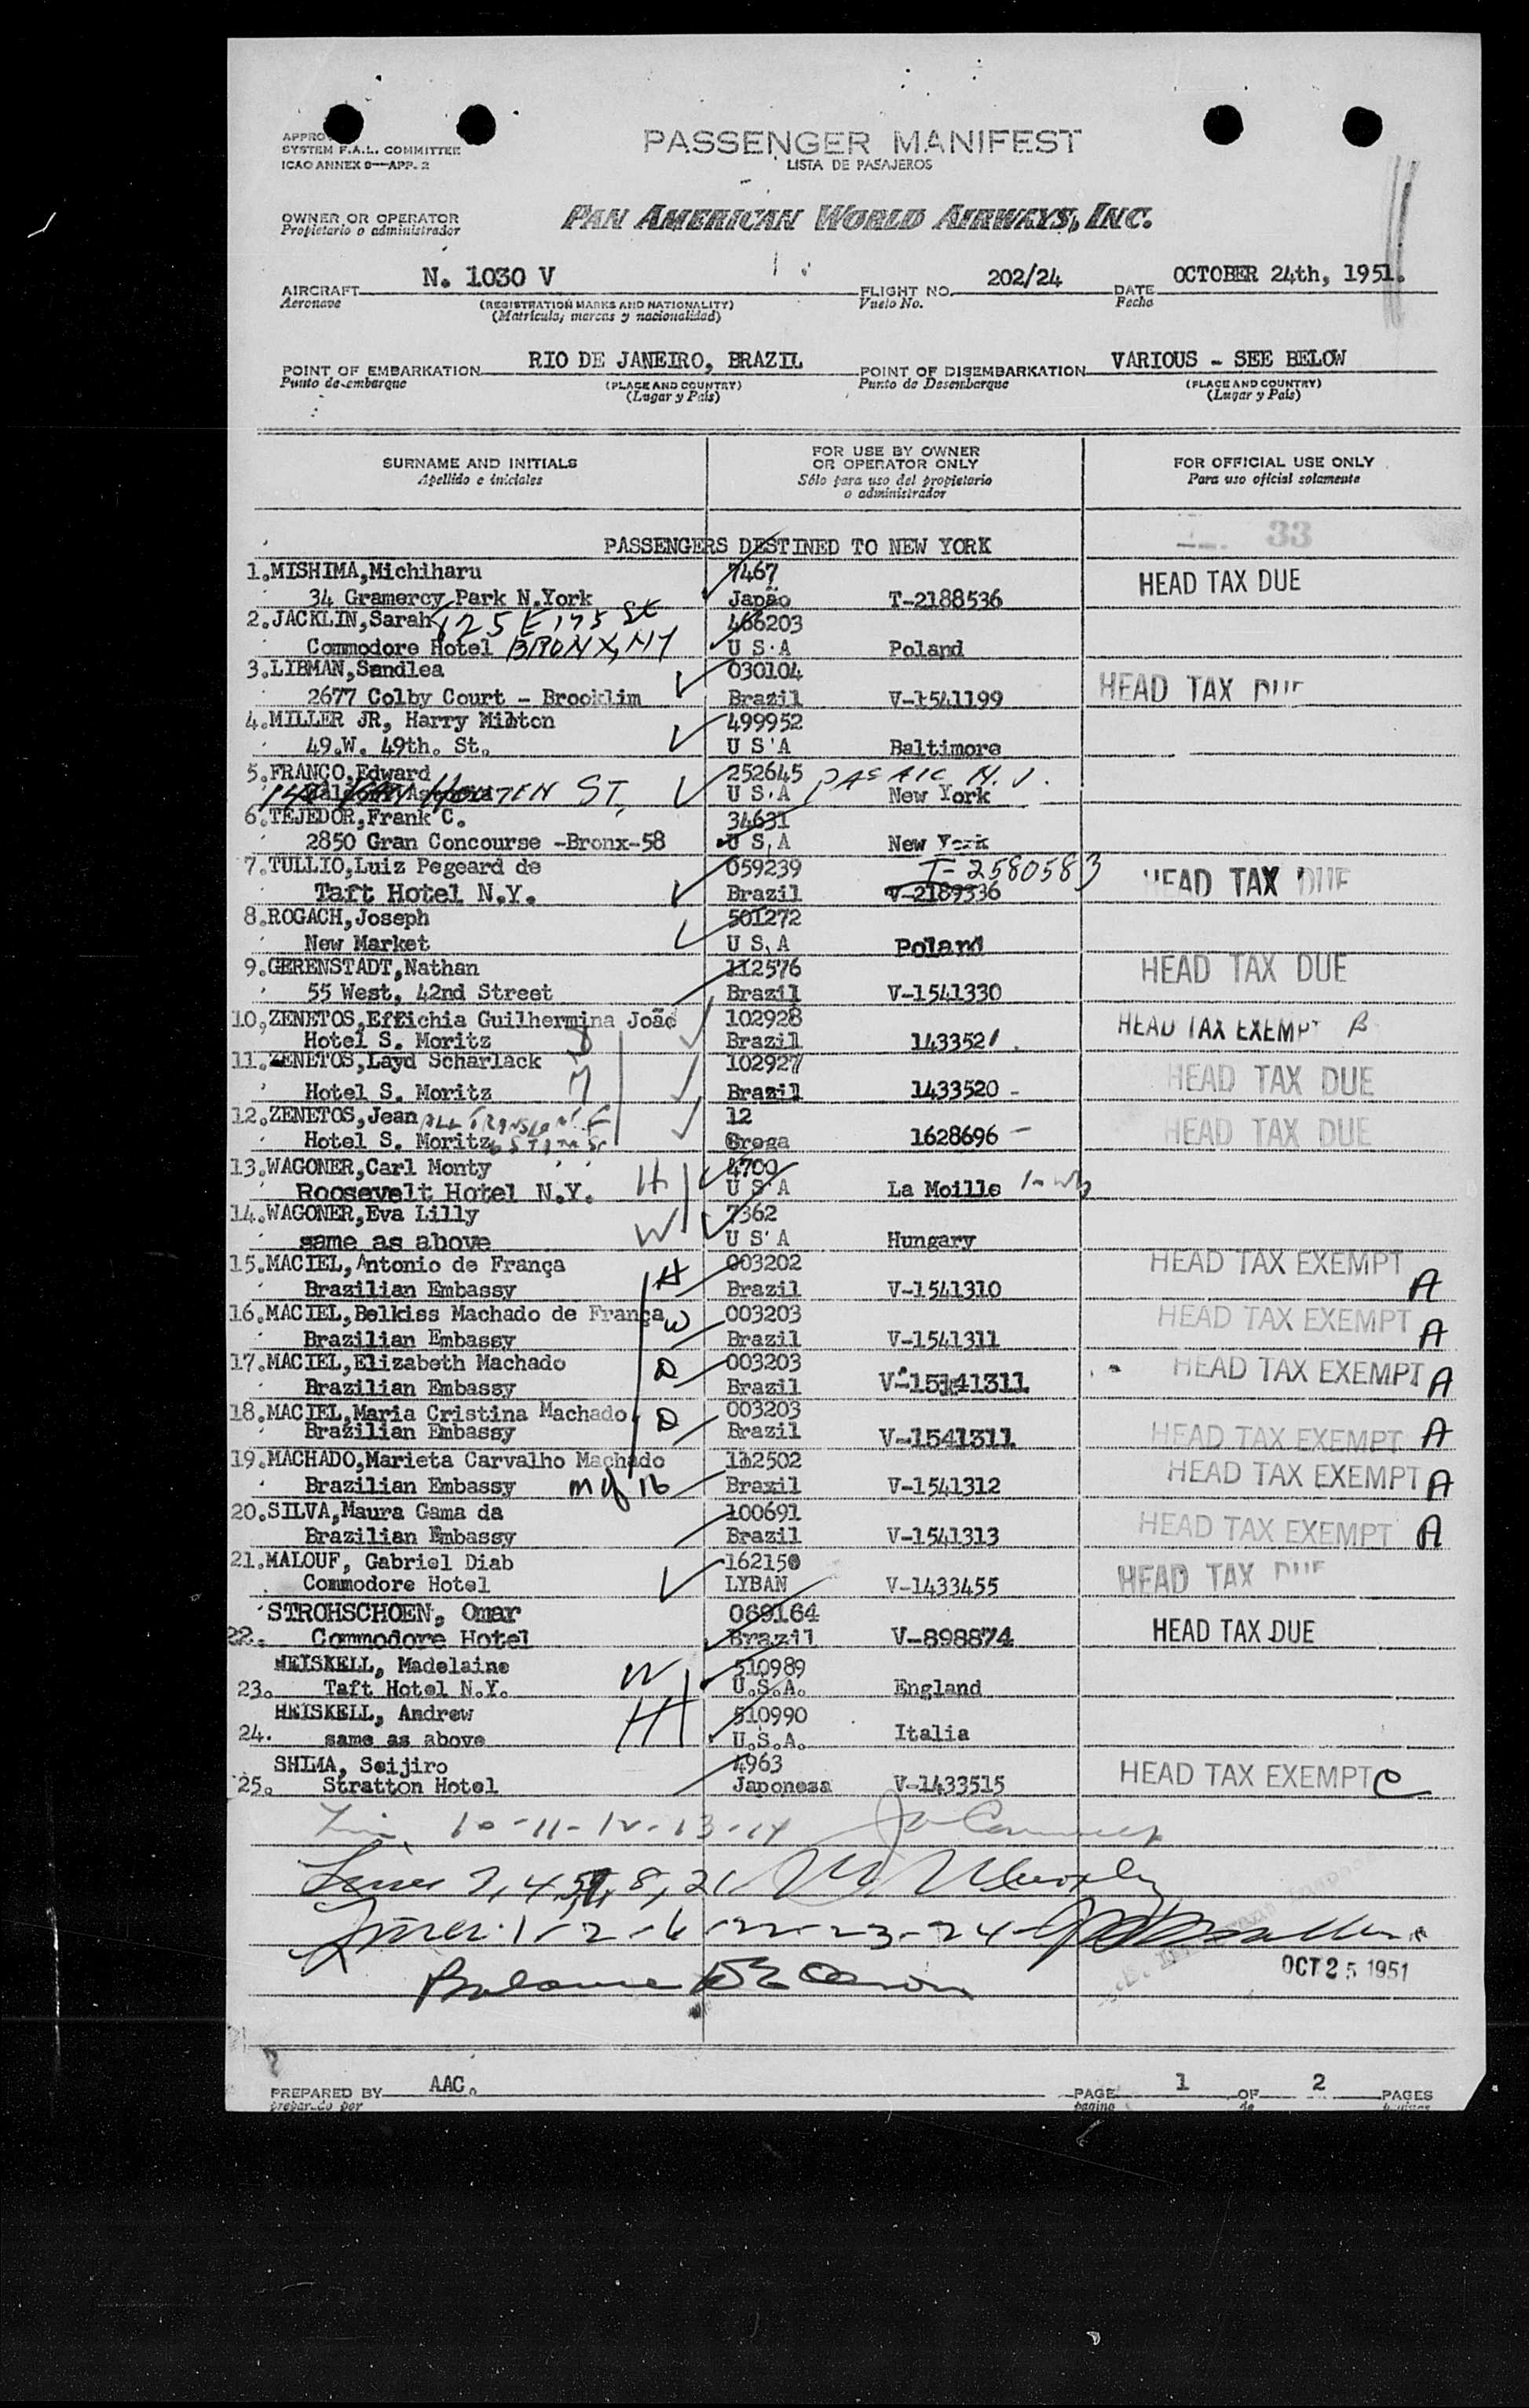 APPRO
SYSTEM F.A.L. COMMITTEE
ICAO ANNEX 9—APP. 2
PASSENGER MANIFEST
LISTA DE PASAJEROS
OWNER OR OPERATOR
Propietario o administrador
PAN AMERICAN WORLD AIRWAYS, INC.
AIRCRAFT N. 1030 V FLIGHT NO. 202/24 DATE OCTOBER 24th, 1951.
Aeronave (REGISTRATION MARKS AND NATIONALITY) Vuelo No. Fecha
(Matricula, marcas y nacionalidad)
POINT OF EMBARKATION RIO DE JANEIRO, BRAZIL POINT OF DISEMBARKATION VARIOUS - SEE BELOW
Punto de embarque (PLACE AND COUNTRY) Punto de Desembarque (PLACE AND COUNTRY)
(Lugar y País) (Lugar y País)
SURNAME AND INITIALS
Apellido e iniciales
FOR USE BY OWNER
OR OPERATOR ONLY
Sólo para uso del propietario
o administrador
FOR OFFICIAL USE ONLY
Para uso oficial solamente
33
PASSENGERS DESTINED TO NEW YORK
1.MISHIMA,Michiharu 7467 HEAD TAX DUE
34 Gramercy Park N.York Japão T-2188536
2.JACKLIN,Sarah 125 E 175 St 466203
Commodore Hotel BRONX, NY U S.A Poland
3.LIBMAN,Sandlea 030104
2677 Colby Court - Brooklim Brazil V-1541199 HEAD TAX DUE
4.MILLER JR, Harry Milton 499952
49.W. 49th. St. U S'A Baltimore
5.FRANCO,Edward 252645 PASAIC N.J.
HOUTEN ST. U S.A New York
6.TEJEDOR,Frank C. 34631
2850 Gran Concourse -Bronx-58 U S,A New York
7.TULLIO,Luiz Pegeard de 059239 T-2580583 HEAD TAX DUE
Taft Hotel N.Y. Brazil V-2189336
8.ROGACH,Joseph 501272
New Market U S,A Poland
9.GERENSTADT,Nathan 112576 HEAD TAX DUE
55 West, 42nd Street Brazil V-1541330
10.ZENETOS,Effichia Guilhermina João 102928 HEAD TAX EXEMPT B
Hotel S. Moritz Brazil 1433521
11.ZENETOS,Layd Scharlack 102927 HEAD TAX DUE
Hotel S. Moritz M Brazil 1433520 -
12.ZENETOS,Jean F 12 HEAD TAX DUE
Hotel S. Moritz Grega 1628696 -
13.WAGONER,Carl Monty H 4700
Roosevelt Hotel N.Y. U S A La Moille
14.WAGONER,Eva Lilly W 7362
same as above U S' A Hungary
15.MACIEL,Antonio de França H 003202 HEAD TAX EXEMPT
Brazilian Embassy Brazil V-1541310 A
16.MACIEL,Belkiss Machado de França W 003203 HEAD TAX EXEMPT A
Brazilian Embassy Brazil V-1541311
17.MACIEL,Elizabeth Machado D 003203 HEAD TAX EXEMPT A
Brazilian Embassy Brazil V-15141311
18.MACIEL,Maria Cristina Machado D 003203
Brazilian Embassy Brazil V-1541311 HEAD TAX EXEMPT A
19.MACHADO,Marieta Carvalho Machado 112502 HEAD TAX EXEMPT A
Brazilian Embassy M of 16 Brazil V-1541312
20.SILVA,Maura Gama da 100691 HEAD TAX EXEMPT A
Brazilian Embassy Brazil V-1541313
21.MALOUF, Gabriel Diab 162150
Commodore Hotel LYBAN V-1433455 HEAD TAX DUE
STROHSCHOEN, Omar 069164
22. Commodore Hotel Brazil V-898874 HEAD TAX DUE
HEISKELL, Madelaine W 510989
23. Taft Hotel N.Y. U.S.A. England
HEISKELL, Andrew H 510990
24. same as above U.S.A. Italia
SHIMA, Seijiro 4963
25. Stratton Hotel Japonesa V-1433515 HEAD TAX EXEMPT C
10-11-12-13-14
Lines 8, 21
Lines 1-2-6-22-23-24
Balance
OCT 25 1951
PREPARED BY AAC. PAGE 1 OF 2 PAGES
preparado por pagina de